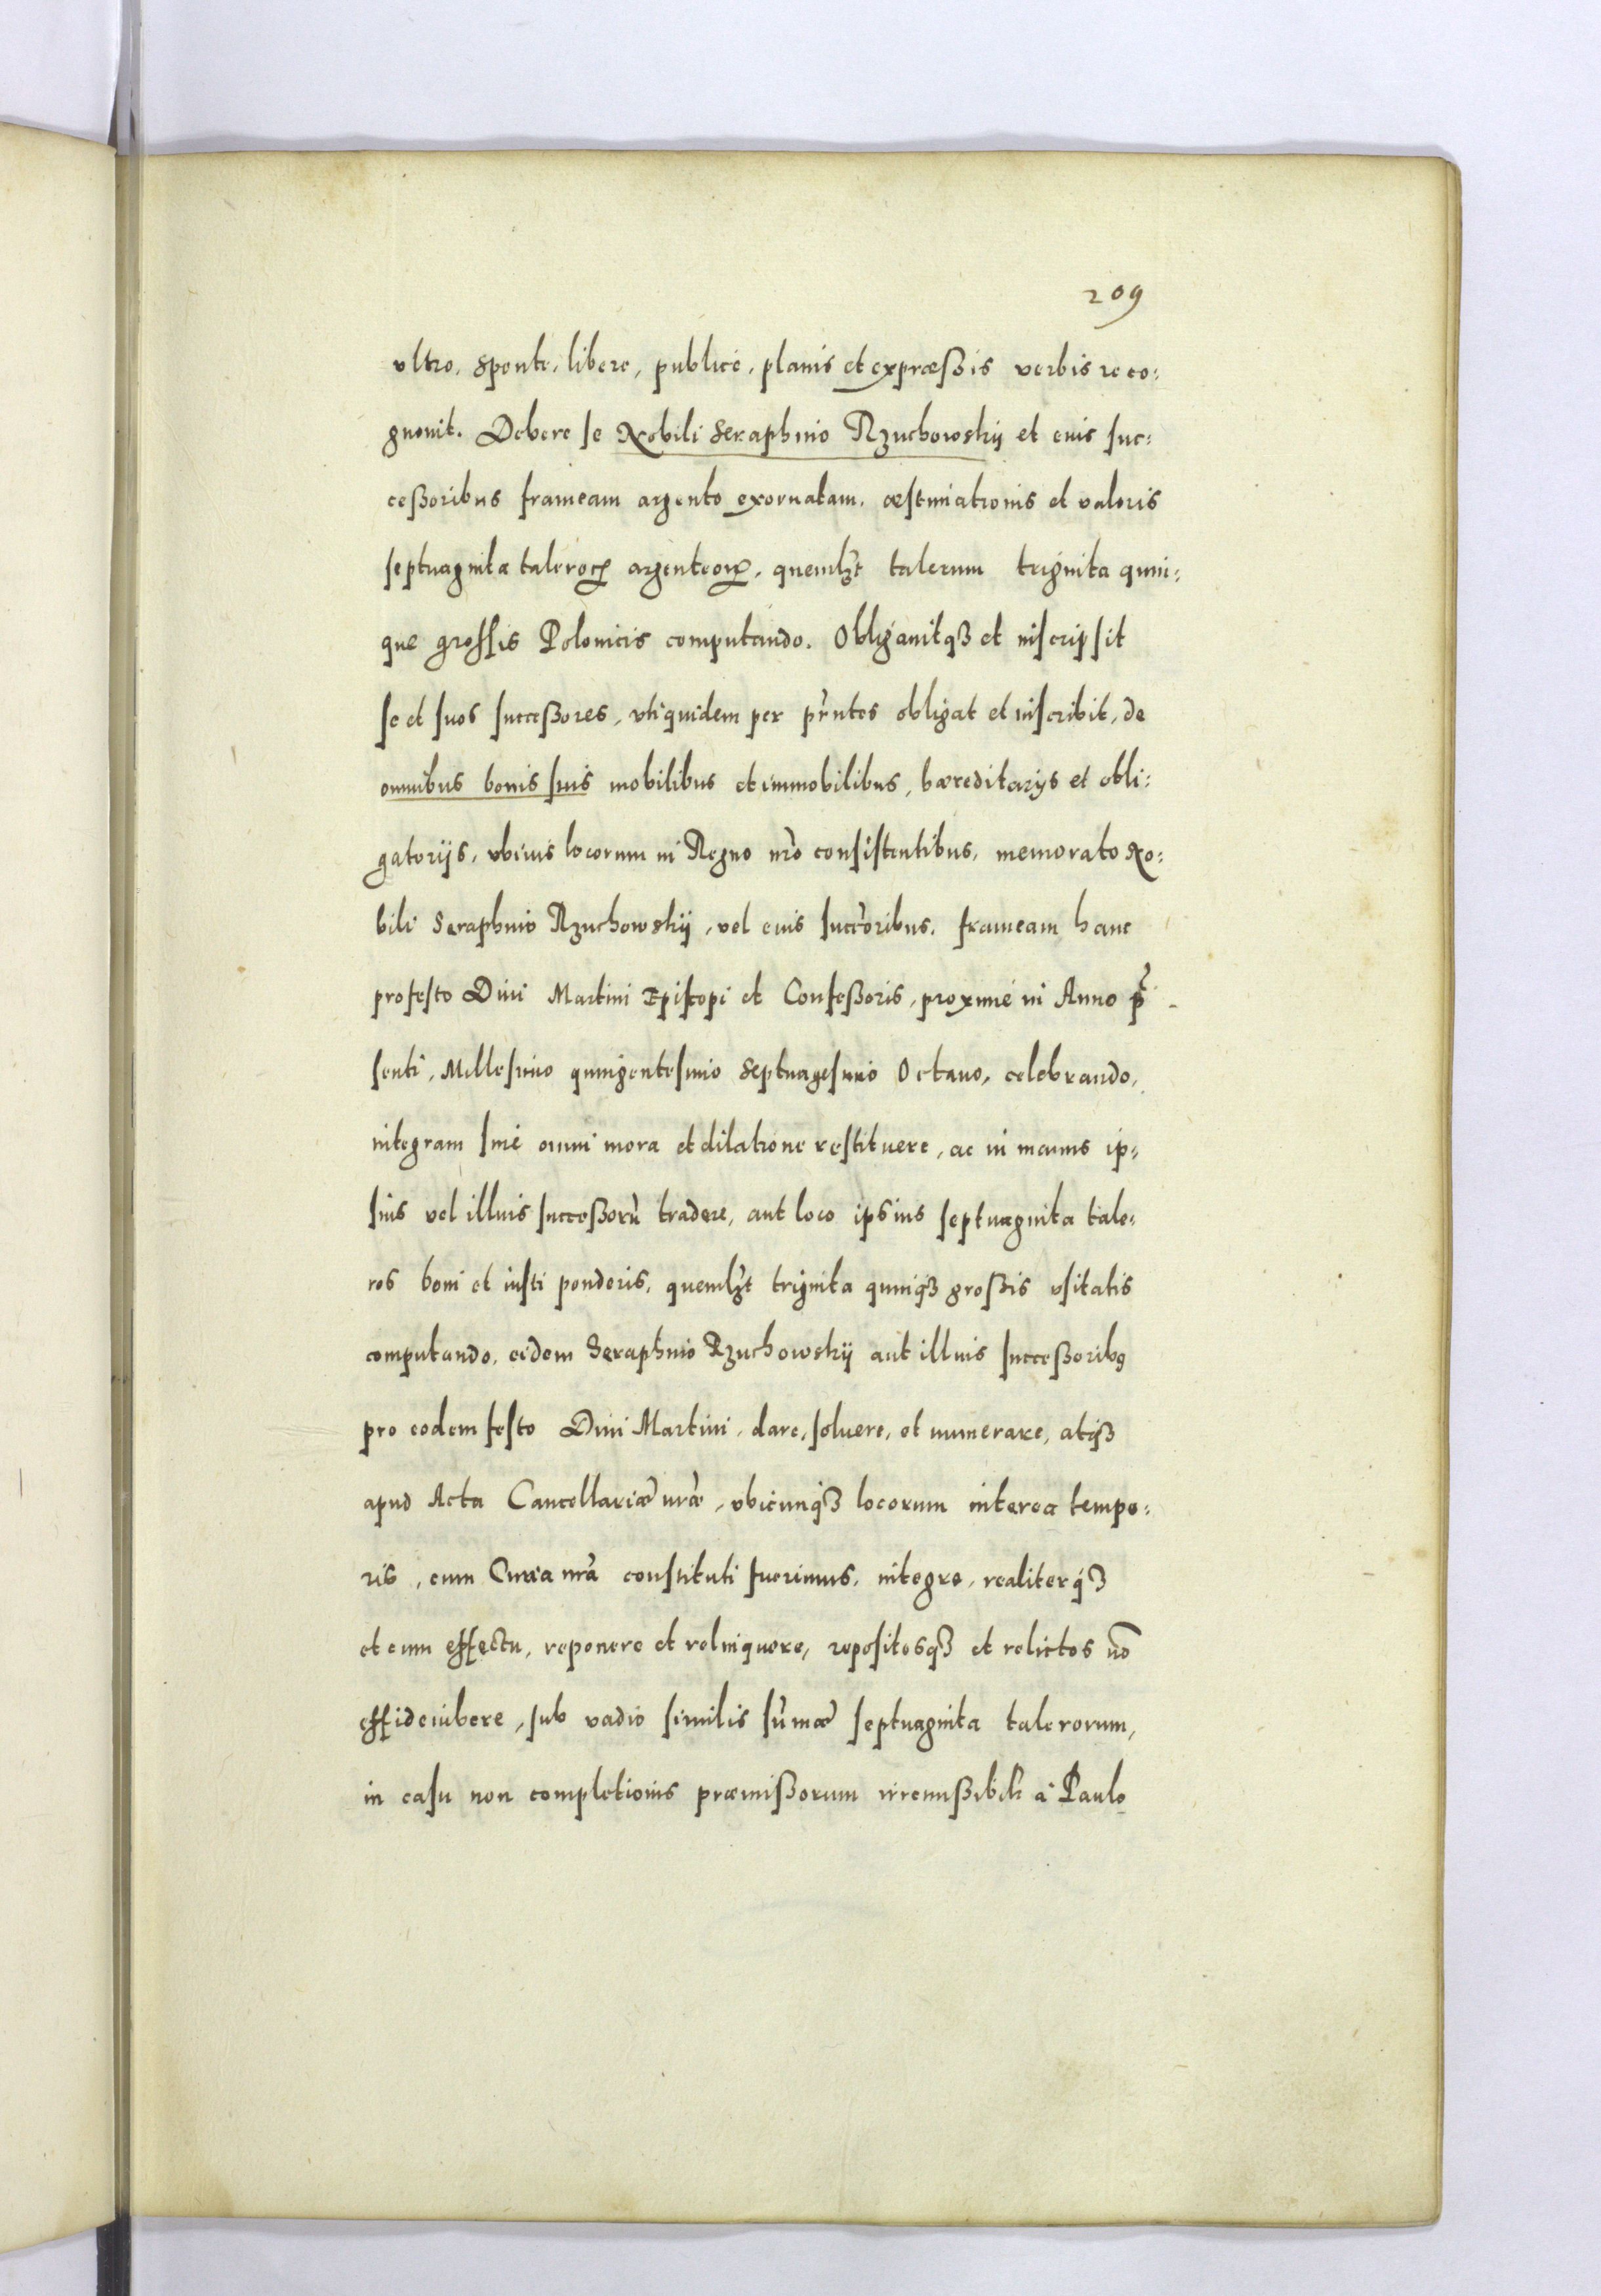 209
vltro, sponte, libere, publicè, planis et expræßis verbis reco:
gnouit. Debere se Nobili Seraphino Rzuchowskij et eius suc:
ceßoribus frameam argento exornatam, æstimationis et valoris
septuaginta taleroꝝ argenteoꝝ, quemlꝫt talerum triginta quin:
que grossis Polonicis computando. Obligauitqꝫ et inscripsit
se et suos succeßores, vtiquidem per p̃ntes obligat et inscribit, de
omnibus bonis suis mobilibus et immobilibus, hæreditarijs et obli:
gatorijs, vbiuis locorum in Regno nr̃o consistentibus, memorato No:
bili Seraphino Rzuchowskij, vel eius succr̃oribus, frameam hanc
pro festo Diui Martini Episcopi et Confeßoris, proximè in Anno p̃
senti, Millesimo quingentesimo Septuagesimo Octauo, celebrando,
integram sinè omni mora et dilatione restituere, ac in manus ip:
sius vel illius succeßorũ tradere, aut loco ipsius septuaginta tale:
ros boni et iusti ponderis, quemlꝫt triginta quinqꝫ großis vsitatis
computando, eidem Seraphino Rzuchowskij aut illius succeßoribꝰ
pro eodem festo Diui Martini, dare, soluere, et numerare, atqꝫ
apud Acta Cancellariæ nr̃æ, vbicunqꝫ locorum interea tempo:
ris, cum Curia nr̃a constituti fuerimus, integre, realiterqꝫ
et cum effectu, reponere et relinquere, repositosqꝫ et relictos nõ
effideiubere, sub vadio similis sum̃æ septuaginta talerorum,
in casu non completionis præmißorum irremißibilr̃ à Paulo